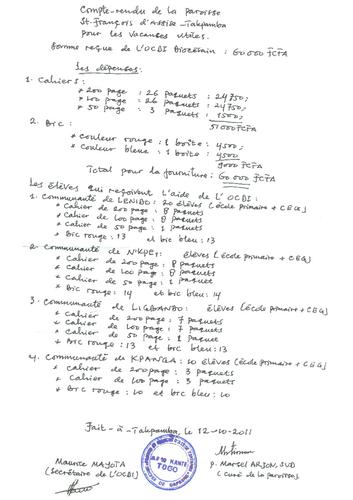 Compte-rendu de la paroisse
St. François d'Assise - Takpamba
pour les vacances utiles.
Somme reçue de l'OCDI Diocésain : 60 000 FCFA
Les dépenses:
1. Cahiers :
* 200 page : 26 paquets : 24750;
* 100 page : 26 paquets : 24750;
* 50 page : 3 paquets : 1500;
51000 FCFA
2. Bic :
* Couleur rouge : 1 boîte : 4500;
* Couleur bleue : 1 boîte : 4500
9000 FCFA
Total pour la fourniture : 60 000 FCFA
Les élèves qui reçoivent l'aide de l'OCDI :
1. Communauté de LENIBO : 20 élèves (école primaire + CEG)
* Cahier de 200 page : 8 paquets
* Cahier de 100 page : 8 paquets
* Cahier de 50 page : 1 paquets
* Bic rouge : 13 et bic bleu : 14
2. Communauté de : élèves (école primaire + CEG)
* Cahier de 200 page : 8 paquets
* Cahier de 100 page : 8 paquets
* Cahier de 50 page : 1 paquet
* Bic rouge : 14 et bic bleu : 14
3. Communauté de : élèves (école primaire + CEG)
* Cahier de 200 page : 7 paquets
* Cahier de 100 page : 7 paquets
* Cahier de 50 page : 1 paquet
* Bic rouge : 13 et bic bleu : 13
4. Communauté de KPANGA : 10 élèves (école primaire + CEG)
* Cahier de 200 page : 3 paquets
* Cahier de 100 page : 3 paquets
* Bic rouge : 10 et bic bleu : 10
Fait - à - Takpamba, le 12-10-2011
Maurice
(Secrétaire de l'OCDI)
TOGO
P. Marcel ARJON, SVD
(Curé de la paroisse)